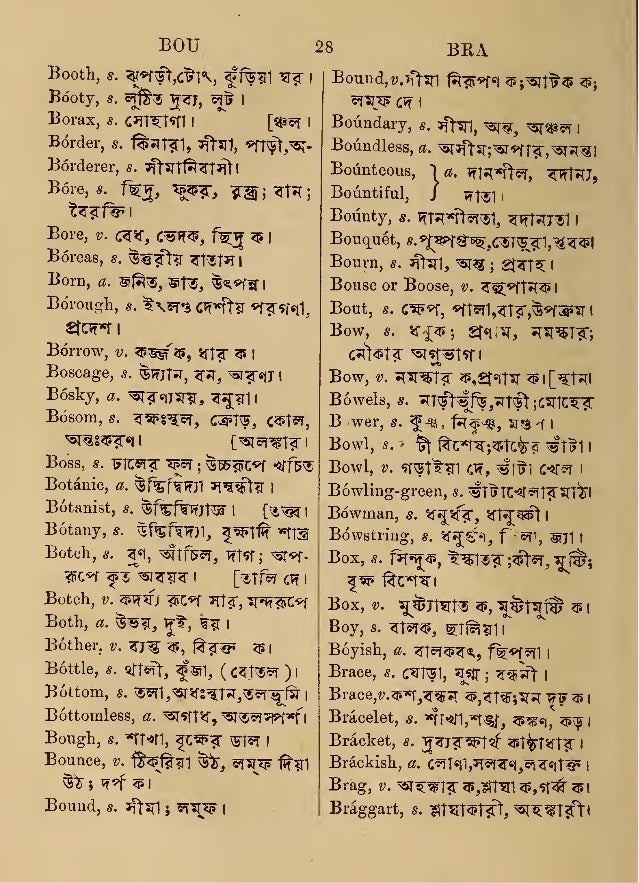 BOU 28 BRA
Booth, s. ঝুপড়ী,টোং, কুঁড়িয়া ঘর।
Bóoty, s. লুঠিত দ্রব্য, লুট।
Borax, s. সোহাগা। [ঞ্চল।
Bórder, s. কিনারা, সীমা, পাড়ী,অ-
Bórderer, s. সীমানিবাসী।
Bóre, s. ছিদ্র, ফুকর, রন্ধ্র; বান;
বৈরক্তি।
Bore, v. বেধ, ভেদক, ছিদ্র ক।
Bóreas, s. উত্তরীয় বাতাস।
Born, a. জনিত, জাত, উৎপন্ন।
Bórough, s. ইংলণ্ড দেশীয় পরগণা,
প্রদেশ।
Bórrow, v. কর্জ্জ ক, ধার ক।
Boscage, s. উদ্যান, বন, অরণ্য।
Bósky, a. অরণ্যময়, বনুয়া।
Bósom, s. বক্ষঃস্থল, ক্রোড়, কোল,
অন্তঃকরণ। [অলঙ্কার।
Boss, s. ঢালের ফুল; উচ্চরূপে খচিত
Botánic, a. উদ্ভিদ্বিদ্যা সম্বন্ধীয়।
Bótanist, s. উদ্ভিদ্বিদ্যাজ্ঞ। [তত্ত্ব।
Bótany, s. উদ্ভিদ্বিদ্যা, বৃক্ষাদি শাস্ত্র
Botch, s. ব্রণ, আঁচিল, দাগ; অপ-
রূপে কৃত অবয়ব। [তালি দে।
Botch, v. কদর্য্য রূপে সার, মন্দরূপে
Both, a. উভয়, দুই, দ্বয়।
Bóther, v. ব্যস্ত ক, বিরক্ত ক।
Bóttle, s. থালী, কুঁজা, (বোতল)।
Bóttom, s. তলা,অধঃস্থান,তলভূমি।
Bóttomless, a. অগাধ, অতলস্পর্শ।
Bough, s. শাখা, বৃক্ষের ডাল।
Bounce, v. ঠিকরিয়া উঠ, লম্ফ দিয়া
উঠ; দর্প ক।
Bound, s. সীমা; লম্ফ।
Bound,v.সীমা নিরূপণ ক;আটক ক;
লম্ফ দে।
Boúndary, s. সীমা, অন্ত, অঞ্চল।
Boúndless, a. অসীম;অপার,অনন্ত।
Boúnteous, } a. দানশীল, বদান্য,
Boúntiful, } দাতা।
Boúnty, s. দানশীলতা, বদান্যতা।
Bouquét, s.পুষ্পগুচ্ছ,তোড়রা,স্তবক।
Bourn, s. সীমা, অন্ত; প্রবাহ।
Bouse or Boose, v. বহুপানক।
Bout, s. ক্ষেপ, পালা,বার,উপক্রম।
Bow, s. ধনুক; প্রণাম, নমস্কার;
নৌকার অগ্রভাগ।
Bow, v. নমস্কার ক,প্রণাম ক।[স্থান।
Bówels, s. নাড়ীভুঁড়ি,নাড়ী;মোহের
B wer, s. নিকুঞ্জ,
Bowl, s. বিশেষ;কাষ্ঠের ভাঁটা।
Bowl, v. গড়াইয়া দে, ভাঁটা খেল।
Bówling-green, s. ভাঁটাখেলার মাঠ।
Bówman, s. ধনুর্ধর, ধানুষ্কী।
Bówstring, s. ধনুর্গুণ, জ্যা।
Box, s. সিন্দুক, ইস্কাতর;কীল, মুষ্টি;
বৃক্ষ বিশেষ।
Box, v. মুষ্ট্যাঘাত ক, মুষ্টামুষ্টি ক।
Boy, s. বালক, ছালিয়া।
Bóyish, a. বালকবৎ, ছিপ্লা।
Brace, s. যোড়া, যুগ্ম; বন্ধনী।
Brace,v.কশ,বন্ধন ক,বান্ধ;মন দৃঢ় ক।
Brácelet, s. শাঁখা,শঙ্খ, কঙ্কণ, কড়।
Brácket, s. দ্রব্যরক্ষার্থ কাষ্ঠাধার।
Bráckish, a. লোণা,সলবণ,লবণাক্ত।
Brag, v. অহঙ্কার ক,শ্লাঘা ক,গর্ব্ব ক।
Brággart, s. শ্লাঘাকারী, অহঙ্কারী।